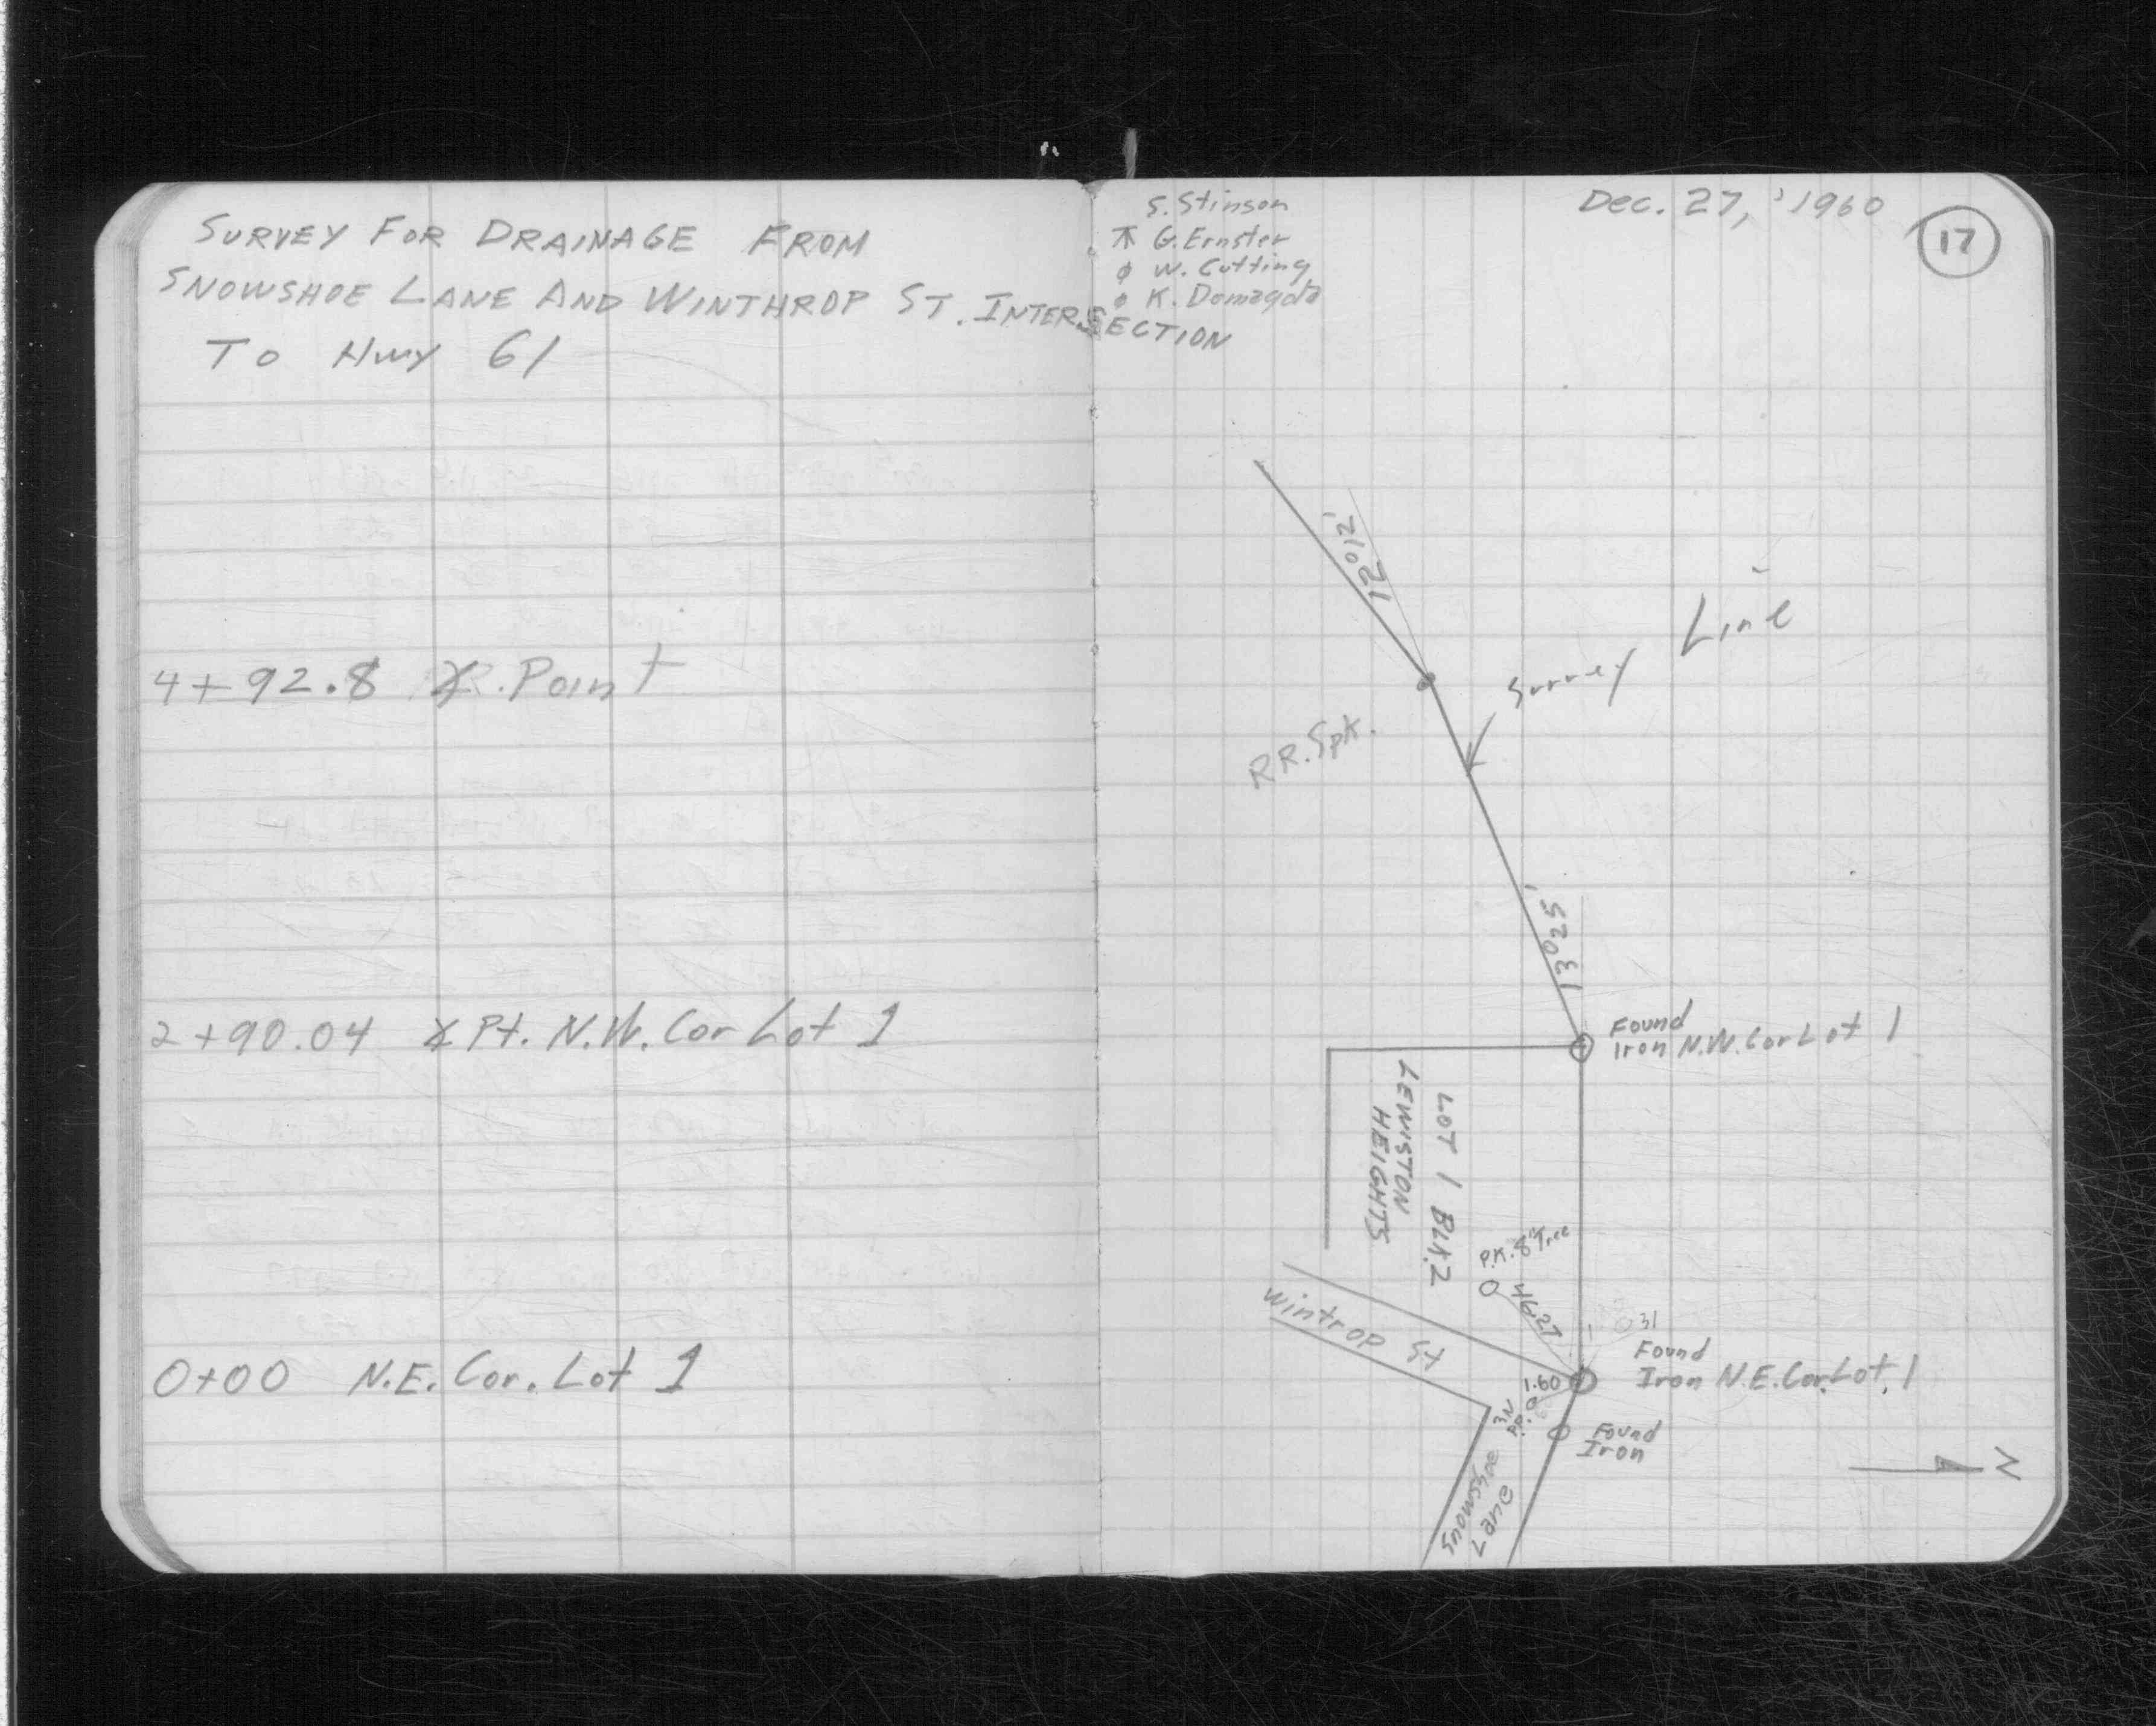 SURVEY FOR DRAINAGE FROM
SNOWSHOE LANE AND WINTHROP ST. INTERSECTION
TO HWY 61
4+92.8 ∡.Point
2+90.04 ∡ Pt. N.W. Cor Lot 1
0+00 N.E. Cor. Lot 1
S. Stinson
⊼ G. Ernster
ϕ W. Cutting
ϕ K. Domagala
Dec. 27, 1960
17
12°12'
Survey Line
R.R. Spk.
13°25'
Found
Iron N.W. Cor Lot 1
LOT 1 BLK.2
LEWISTON
HEIGHTS
P.K. 8" Tree
46.27
31
Wintrop St
Found
Iron N.E. Cor. Lot. 1
1.60
P.P.
Found
Iron
Snowshoe
Lane
N